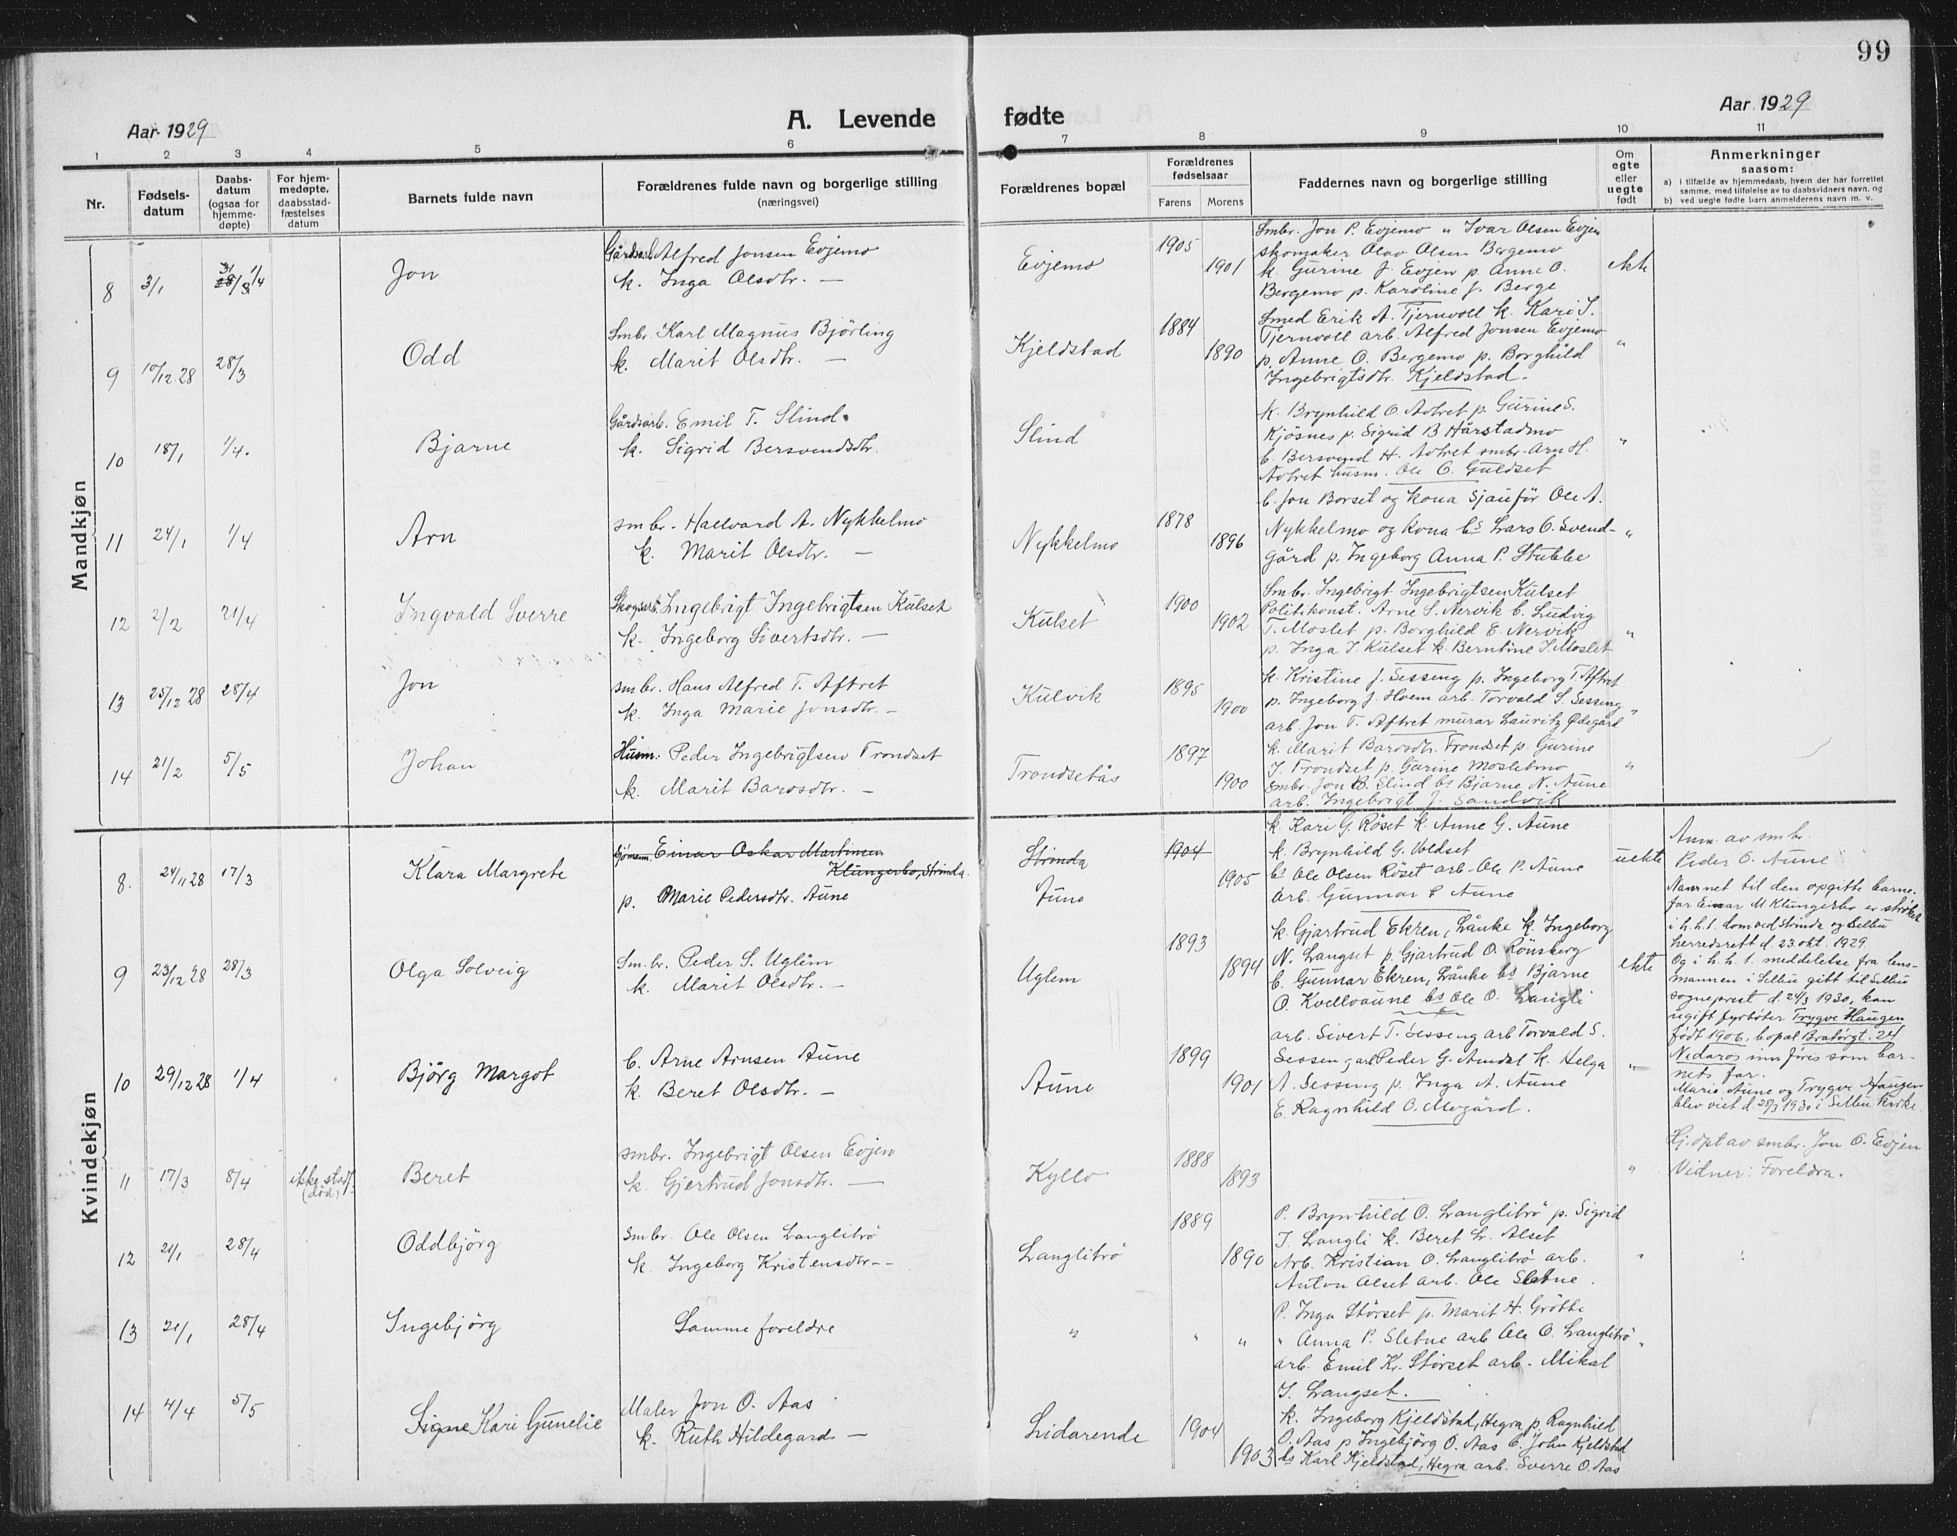 99
Aar 1929
A. Levende fødte
Aar 1929
1 2 3 4 5 6 7 8 9 10 11
Nr.
Fødsels-
datum
Daabs-
datum
(ogsaa for
hjemme-
døpte)
For hjem-
medøpte,
daabsstad-
fæstelses
datum
Barnets fulde navn
Forældrenes fulde navn og borgerlige stilling
(næringsvei)
Forældrenes bopæl
Forældrenes
fødselsaar
Farens Morens
Faddernes navn og borgerlige stilling
Om
egte
eller
uegte
født
Anmerkninger
saasom:
a) I tilfælde av hjemmedaab, hvem der har forrettet
samme, med tilføielse av to daabsvidners navn, og
b) ved uegte fødte barn anmelderens navn m. v.
Mandkjøn
8 3/1 1/4 Jon
Gårdsarb. Alfred Jonsen Evjemo
k. Inga Olsdtr. —
Evjemo 1905 1901
Smbr. Jon P. Evjemo " Ivar Olsen Evjen
skomaker Olav Olsen Bergemo
k. Gurine J. Evjen p. Anne O.
Bergemo p. Karoline J. Berge
ekte
9 10/12 28 28/3 Odd
Smbr. Karl Magnus Bjørling
k. Marit Olsdtr. —
Kjeldstad 1884 1890
Smed Erik A. Tjernvoll k. Kari S.
Tjernvoll arb. Alfred Jonsen Evjemo
p. Anne O. Bergemo p. Borghild
Ingebrigtsdtr. Kjeldstad.
"
10 18/1 1/4. Bjarne
Gårdsarb. Emil T. Slind.
k. Sigrid Bersvendsdtr.
Slind
k. Brynhild O. Avtret p. Gurine S.
Kjösnes p. Sigrid B Hårstadmo
b. Bersvend H. Avtret smbr. Arn H.
Avtret husm. Ole O. Guldset
"
11 24/1 1/4 Arn
smbr. Hallvard A. Nykkelmo
k. Marit Olsdtr. —
Nykkelmo 1878 1896
b. Jon Borset og kona Sjauför Ole A.
Nykkelmo og kona bs Lars O. Svend-
gård p. Ingeborg Anna P. Stubbe
"
12 2/2 21/4 Ingvald Sverre
Skogsarb. Ingebrigt Ingebrigtsen Kulset
k. Ingeborg Sivertsdtr. —
Kulset 1900 1902
Smbr. Ingebrigt Ingebrigtsen Kulset
Politikonst. Arne S. Nervik b. Ludvig
T. Moslet p. Borghild E. Nervik
p. Inga I. Kulset k. Berntine I. Moslet
"
13 25/12 28 28/4 Jon
smbr. Hans Alfred T. Aftret
k. Inga Marie Jonsdtr. —
Kulvik 1895 1900
k. Kristine J. Sessing p. Ingeborg T. Aftret
p. Ingeborg J. Hoem arb. Torvald S. Sessing
arb. Jon T. Aftret murar Lauritz Ødegård
"
14 21/2 5/5 Johan
Husm. Peder Ingebrigtsen Trondset
k. Marit Barosdtr. —
Trondsetås 1897 1900
k. Marit Barosdtr. Trondset p. Gurine
I. Trondset p. Gurine Mosletmo
Smbr. Jon B. Slind bs Bjarne N. Aune
arb. Ingebrigt J. Sandvik
"
Kvindekjøn
8. 24/11 28 17/3 Klara Margrete
Einar Oskar Martinsen
Klungerbo, Strinda.
p. Marie Pedersdtr. Aune
Strinda
Aune
1904 1905
k. Kari G. Røset k. Anne G. Aune
k. Brynhild G. Voldset
bs Ole Olsen Røset arb. Ole P. Aune
arb. Gunnar P. Aune
uekte
Anm. av smbr.
Peder O. Aune
Navnet til den opgitte barne-
far Einar M Klungerbo er strøket
i h.h.t. dom ved Strinda og Selbu
herredsrett d. 23. okt. 1929
Og i h.h.t. meddelelse fra lens-
mannen i Selbu gitt til Selbu
sogneprest d. 24/3 1930, kan
ugift fyrbøter Trygve Haugen
født 1906, bopæl Bratørgt. 24
Nidaros innføres som bar-
nets far.
Marie Aune og Trygve Haugen
blev viet d. 28/3 1930 i Selbu kirke
9 23/12 28 28/3 Olga Solveig
Sm.br. Peder S. Uglem
k. Marit Olsdtr. —
Uglem 1893 1894
k Gjartrud Ekren, Lånke k. Ingeborg
N. Langset p. Gjartrud O. Rönsberg
b. Gunnar Ekren, Lånke bs Bjarne
O. Kvellvaune bs Ole O. Langli
ekte
10 29/12 28 1/4 Björg Margot
b. Arne Arnsen Aune
k. Beret Olsdtr. —
Aune 1899 1901
arb. Sivert T. Sessing arb Torvald S.
Sessing arb Peder G. Amdal k. Helga
A. Sessing p. Inga A. Aune
E. Ragnhild O. Mogård.
"
11 17/3 8/4 ikke stadf.
(död) Beret
smbr. Ingebrigt Olsen Evjen
k. Gjertrud Jonsdtr. —
Kyllo 1888 1893
"
Hj.döpt av smbr. Jon O. Evjen
Vidner: Foreldra.
12 21/1 28/4 Oddbjörg
Smbr. Ole Olsen Langlitrö
k. Ingeborg Kristensdtr. —
Langlitrö 1889 1890
P. Brynhild O. Langlitrö p. Sigrid
I. Langli k. Beret L. Alset
Arb. Kristian O. Langlitrö arb.
Anton Alset arb. Ole Sletne.
"
13 21/1 28/4 Ingebjörg
Samme foreldre
" " "
P. Inga Störset p. Marit H. Grötte
" Anna P. Sletne arb Ole O. Langlitrö
arb. Emil Kr. Störset arb. Mikal
I. Langset.
"
14 4/4 5/5 Signe Kari Gunelie
Maler Jon O. Aas
k. Ruth Hildegard —
Lidarende 1904 1903
k. Ingeborg Kjeldstad, Hegra p. Ragnhild
O. Aas p Ingebjörg O. Aas b. John Kjeldstad
bs Karl Kjeldstad, Hegra arb. Sverre O. Aas